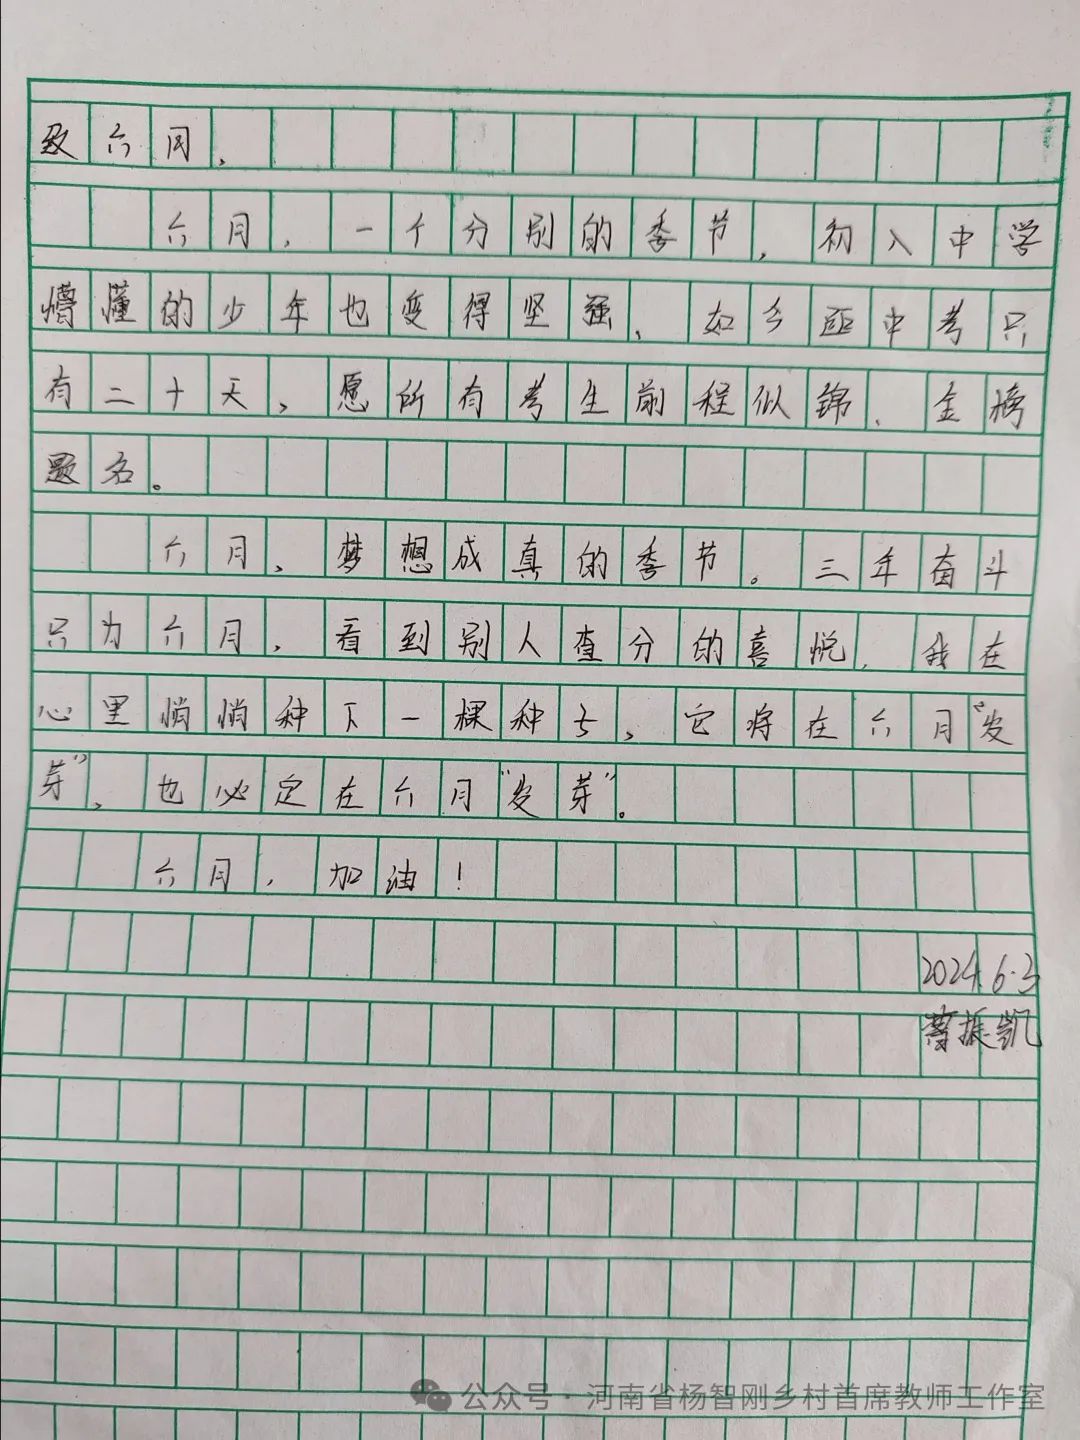 致六月,
六月,一个分别的季节,初入中学
懵懂的少年也变得坚强、如今距中考只
有二十天,愿所有考生前程似锦、金榜
题名。
六月,梦想成真的季节。三年奋斗
只为六月,看到别人查分的喜悦,我在
心里悄悄种下一棵种子,它将在六月“发
芽”,也必定在六月“发芽”。
六月,加油!
2024.6.3
振凯
公众号·河南省杨智刚乡村首席教师工作室